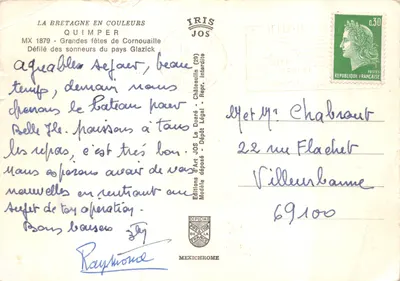 LA BRETAGNE EN COULEURS
QUIMPER
MX 1879 - Grandes fêtes de Cornouaille
Défilé des sonneurs du pays Glazick
agreables sejour, beau
temps, demain nous
prenons le bateau pour
Belle Ile. poissons à tous
les repas, c'est très bon.
nous esperons avoir de vos
nouvelles en rentrant au
sujet de ton operation.
Bons baisers
Raymonde
IRIS
JOS
Editions d'Art JOS Le Doaré - Châteaulin (29)
Modèle déposé - Dépôt Légal - Repr. interdite
MEXICHROME
0,30
REPUBLIQUE FRANÇAISE
M et Me Chabrout
22 rue Flachet
Villeurbanne
69100